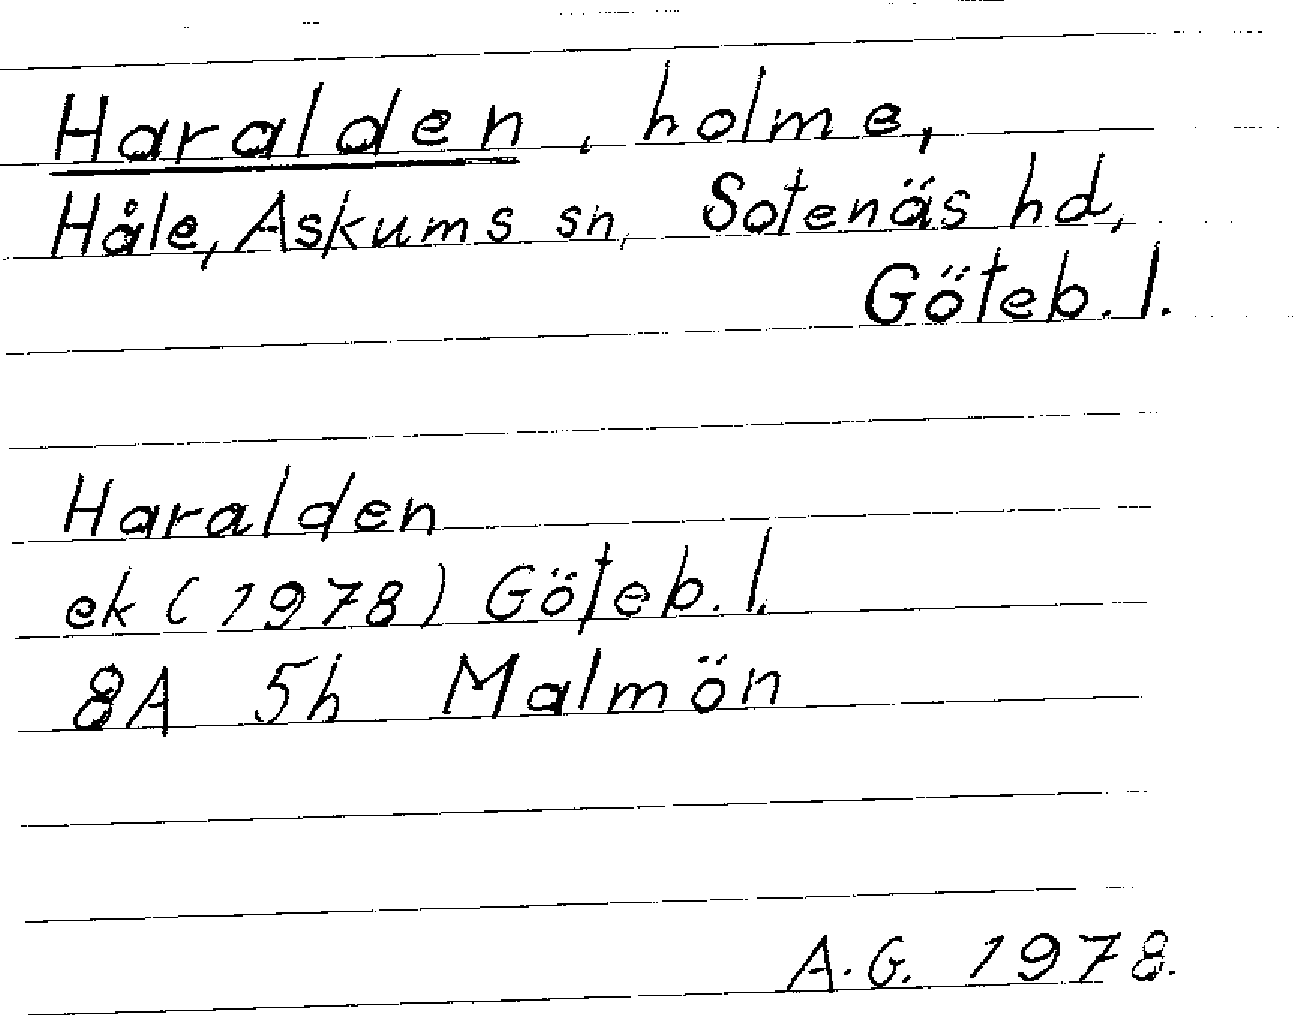 Haralden, holme,
Håle, Askums sn, Sotenäs hd,
Göteb. l.
Haralden
ek (1978) Göteb. l.
8A 5h Malmön
A.G. 1978.